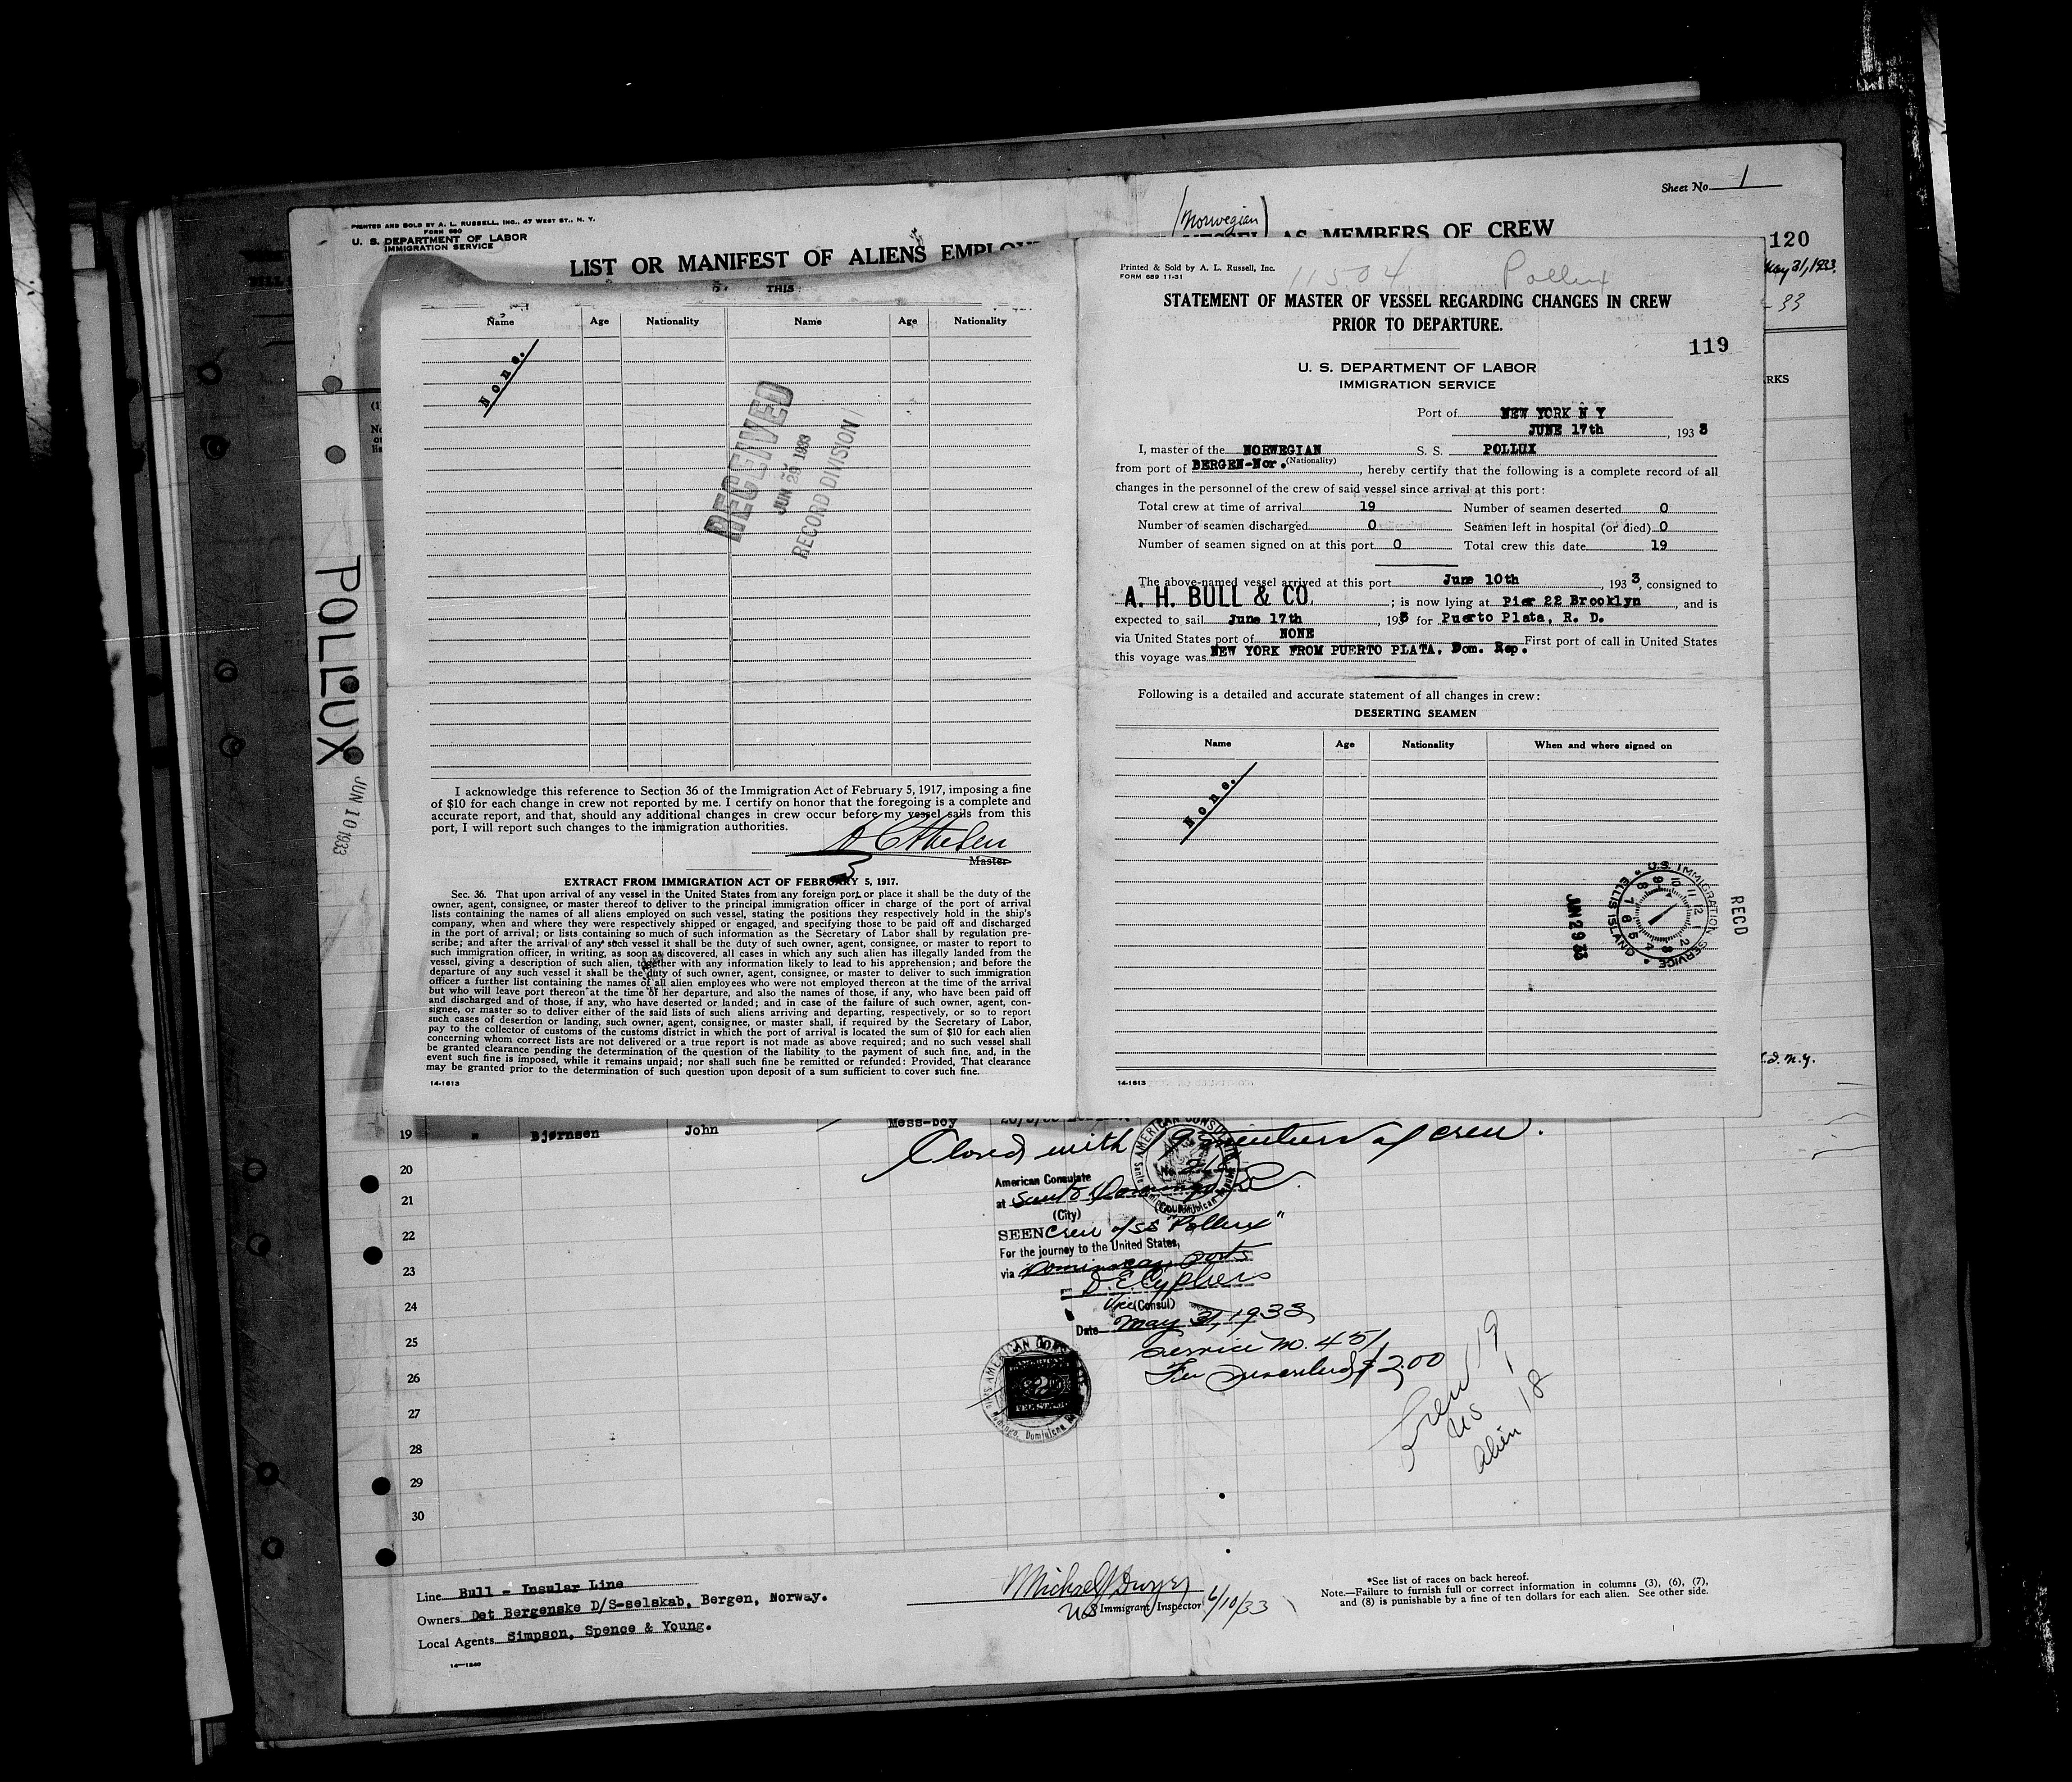 Sheet No. 1
(Norwegian)
PRINTED AND SOLD BY A. L. RUSSELL, INC., 47 WEST ST., N. Y.
FORM 680
U. S. DEPARTMENT OF LABOR
IMMIGRATION SERVICE
LIST OR MANIFEST OF ALIENS EMPLO
AS MEMBERS OF CREW
THIS
120
May 31, 1933.
33
RKS
Name Age Nationality Name Age Nationality
None.
RECEIVED
JUN 29 1933
RECORD DIVISION
I acknowledge this reference to Section 36 of the Immigration Act of February 5, 1917, imposing a fine
of $10 for each change in crew not reported by me. I certify on honor that the foregoing is a complete and
accurate report, and that, should any additional changes in crew occur before my vessel sails from this
port, I will report such changes to the immigration authorities.
Master
EXTRACT FROM IMMIGRATION ACT OF FEBRUARY 5, 1917.
Sec. 36. That upon arrival of any vessel in the United States from any foreign port or place it shall be the duty of the
owner, agent, consignee, or master thereof to deliver to the principal immigration officer in charge of the port of arrival
lists containing the names of all aliens employed on such vessel, stating the positions they respectively hold in the ship's
company, when and where they were respectively shipped or engaged, and specifying those to be paid off and discharged
in the port of arrival; or lists containing so much of such information as the Secretary of Labor shall by regulation pre-
scribe; and after the arrival of any such vessel it shall be the duty of such owner, agent, consignee, or master to report to
such immigration officer, in writing, as soon as discovered, all cases in which any such alien has illegally landed from the
vessel, giving a description of such alien, together with any information likely to lead to his apprehension; and before the
departure of any such vessel it shall be the duty of such owner, agent, consignee, or master to deliver to such immigration
officer a further list containing the names of all alien employees who were not employed thereon at the time of the arrival
but who will leave port thereon at the time of her departure, and also the names of those, if any, who have been paid off
and discharged and of those, if any, who have deserted or landed; and in case of the failure of such owner, agent, con-
signee, or master so to deliver either of the said lists of such aliens arriving and departing, respectively, or so to report
such cases of desertion or landing, such owner, agent, consignee, or master shall, if required by the Secretary of Labor,
pay to the collector of customs of the customs district in which the port of arrival is located the sum of $10 for each alien
concerning whom correct lists are not delivered or a true report is not made as above required; and no such vessel shall
be granted clearance pending the determination of the question of the liability to the payment of such fine, and, in the
event such fine is imposed, while it remains unpaid; nor shall such fine be remitted or refunded: Provided, That clearance
may be granted prior to the determination of such question upon deposit of a sum sufficient to cover such fine.
14-1613
Printed & Sold by A. L. Russell, Inc.
FORM 689 11-31
11504 Pollux
STATEMENT OF MASTER OF VESSEL REGARDING CHANGES IN CREW
PRIOR TO DEPARTURE.
119
U. S. DEPARTMENT OF LABOR
IMMIGRATION SERVICE
Port of NEW YORK N Y
JUNE 17th, 1933
I, master of the NORWEGIAN S. S. POLLUX
(Nationality)
from port of BERGEN-Nor., hereby certify that the following is a complete record of all
changes in the personnel of the crew of said vessel since arrival at this port:
Total crew at time of arrival 19 Number of seamen deserted 0
Number of seamen discharged 0 Seamen left in hospital (or died) 0
Number of seamen signed on at this port 0 Total crew this date 19
The above-named vessel arrived at this port June 10th, 1933, consigned to
A. H. BULL & CO.; is now lying at Pier 22 Brooklyn, and is
expected to sail June 17th, 1933 for Puerto Plata, R. D.
via United States port of NONE First port of call in United States
this voyage was NEW YORK FROM PUERTO PLATA, Dom. Rep.
Following is a detailed and accurate statement of all changes in crew:
DESERTING SEAMEN
Name Age Nationality When and where signed on
None.
U.S. IMMIGRATION SERVICE
ELLIS ISLAND
REC'D
JUN 29 33
14-1613
POLLUX
JUN 10 1933
19 " Bjørnsen John Mess-boy
Closed with crew.
20
21
22
23
24
25
26
27
28
29
30
AMERICAN CONSULATE
American Consulate
at Santo Domingo
(City)
SEEN Crew of SS "Pollux"
For the journey to the United States,
via Dominican ports
D. E. Cyphers
Vice (Consul)
Date May 31, 1933
Service No. 451
Fee $2.00
Crew 19
US 1
Alien 18
Line Bull - Insular Line
Owners Det Bergenske D/S-selskab, Bergen, Norway.
Local Agents Simpson, Spence & Young.
14-1240
Michael J Dwyer
US Immigrant Inspector 6/10/33
*See list of races on back hereof.
Note.—Failure to furnish full or correct information in columns (3), (6), (7),
and (8) is punishable by a fine of ten dollars for each alien. See other side.